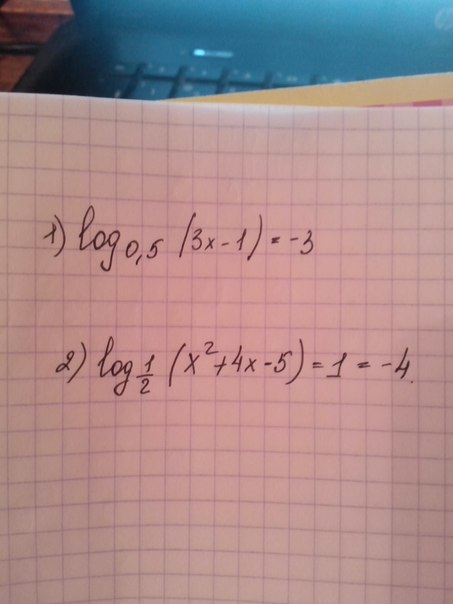 1) log0,5 (3x-1) = -3
2) log1/2 (x²+4x-5) = 1 = -4